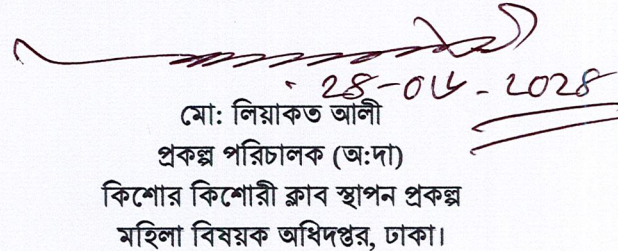 ২৪-০৬-২০২৪
মো: লিয়াকত আলী
প্রকল্প পরিচালক (অ:দা)
কিশোর কিশোরী ক্লাব স্থাপন প্রকল্প
মহিলা বিষয়ক অধিদপ্তর, ঢাকা।